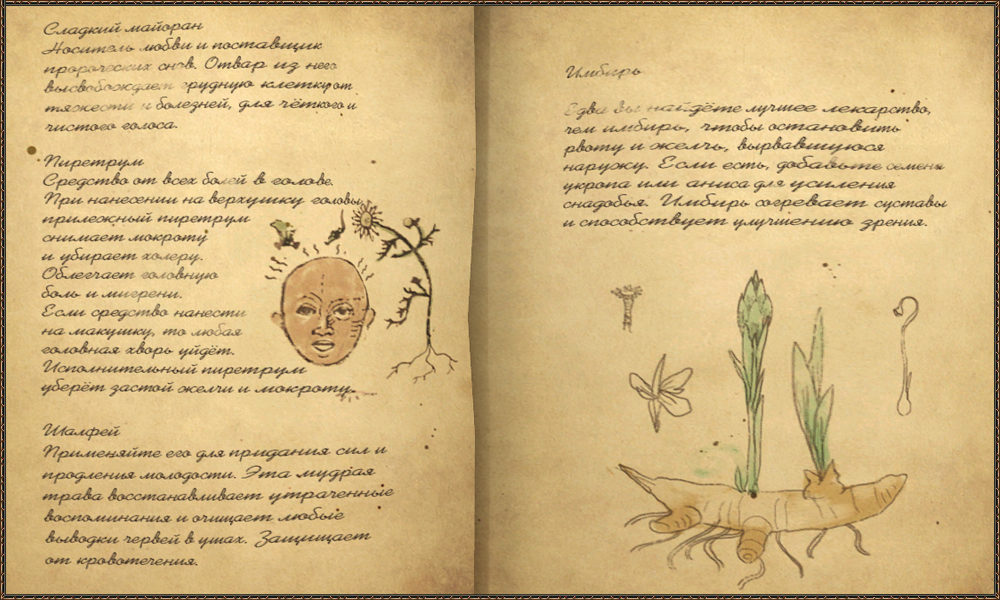 Сладкий майоран
Носитель любви и поставщик
пророческих снов. Отвар из него
высвобождает грудную клетку от
тяжести и болезней, для чёткого и
чистого голоса.
Пиретрум
Средство от всех болей в голове.
При нанесении на верхушку головы,
прилежный пиретрум
снимает мокроту
и убирает холеру.
Облегчает головную
боль и мигрени.
Если средство нанести
на макушку, то любая
головная хворь уйдёт.
Исполнительный пиретрум
уберёт застой желчи и мокроту.
Шалфей
Применяйте его для придания сил и
продления молодости. Эта мудрая
трава восстанавливает утраченные
воспоминания и очищает любые
выводки червей в ушах. Защищает
от кровотечения.
Имбирь
Едва вы найдёте лучшее лекарство,
чем имбирь, чтобы остановить
рвоту и желчь, вырвавшуюся
наружу. Если есть, добавьте семена
укропа или аниса для усиления
снадобья. Имбирь согревает суставы
и способствует улучшению зрения.